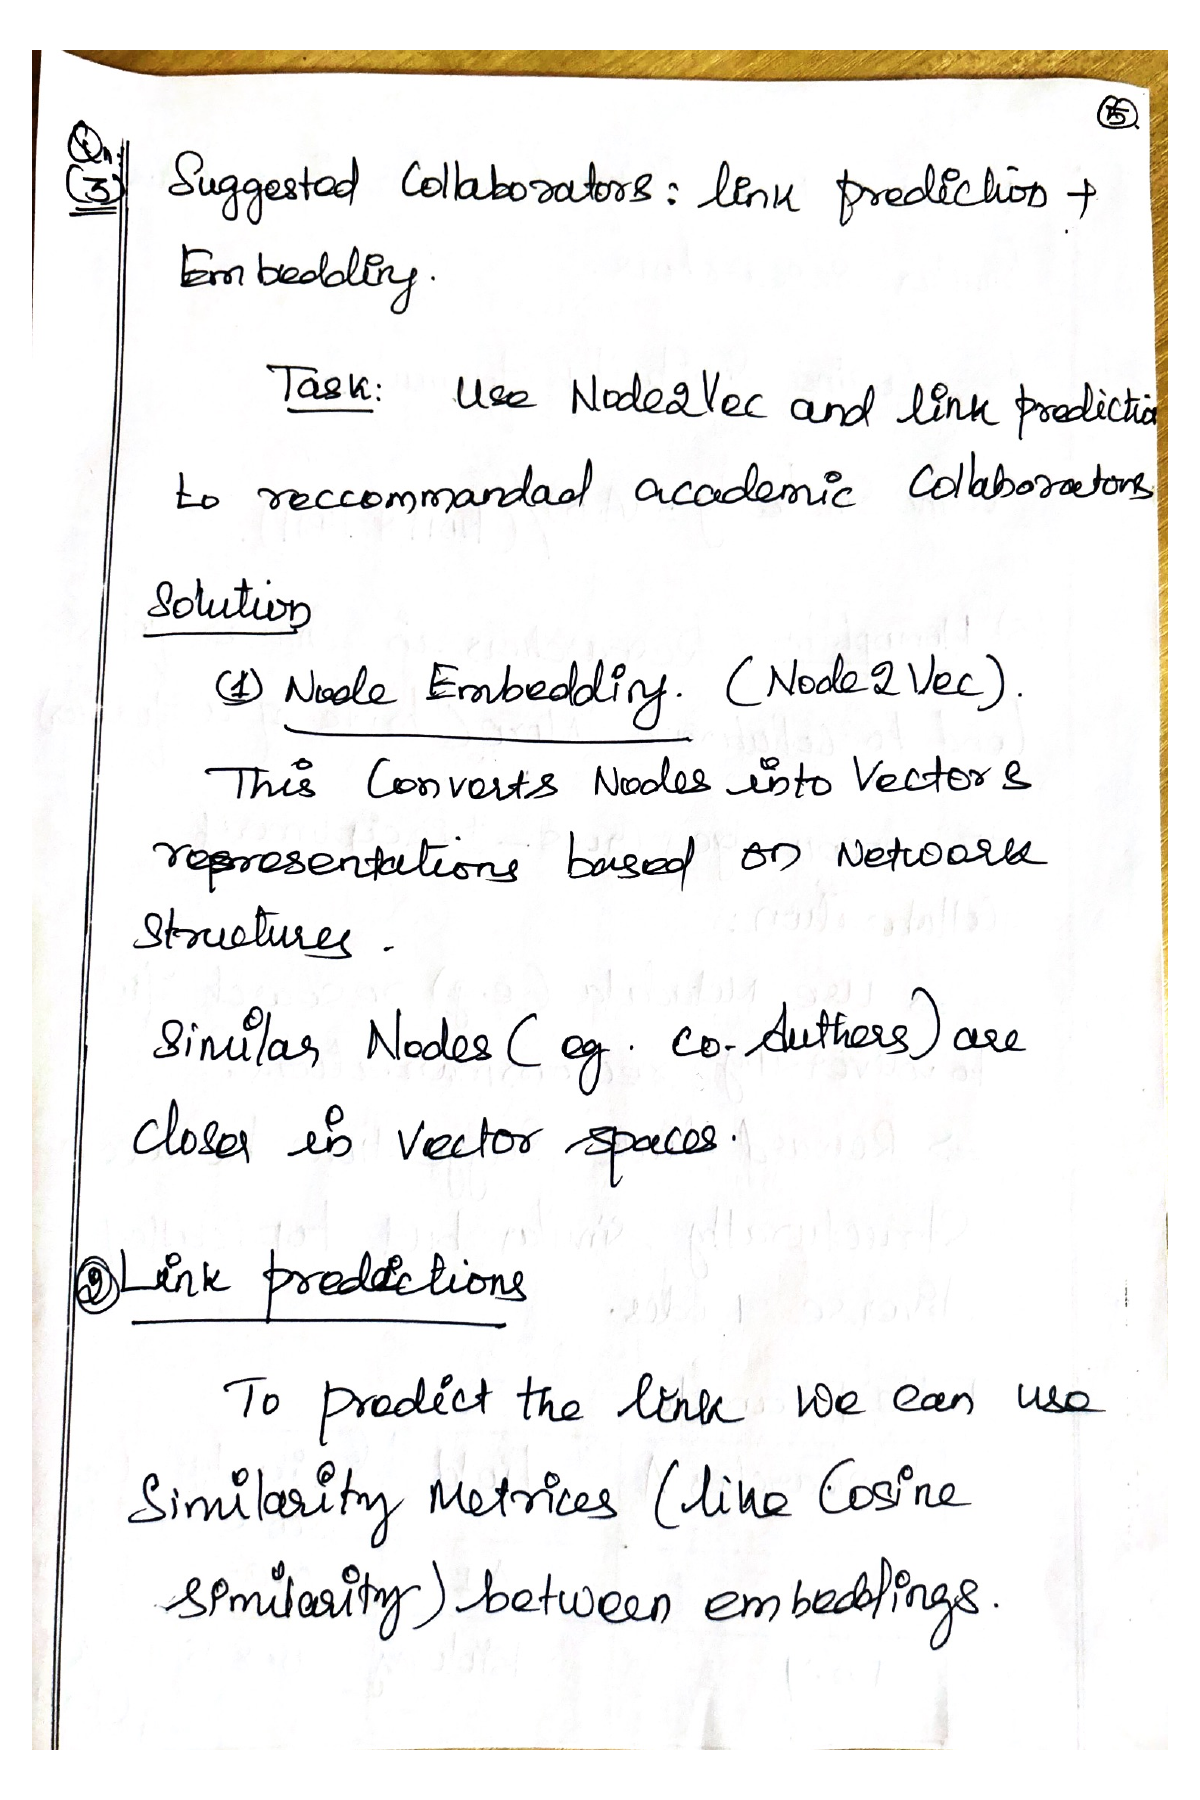 15
Qn:
(3) Suggested Collaborators: link prediction +
Embedding.
Task: Use Node2Vec and link predictio
to reccommandad academic Collaborators
Solution
(1) Node Embedding. (Node2Vec).
This Converts Nodes into Vectors
representations based on Network
Structures.
Similar Nodes (eg. co-Authers) are
closer in vector spaces.
(2) Link predictions
To predict the link we can use
Similarity Metrices (like Cosine
similarity) between embeddings.